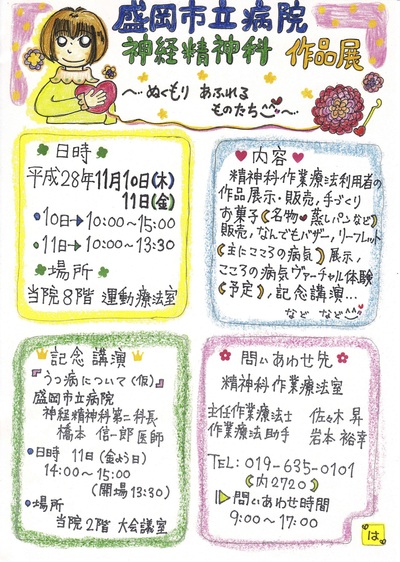 盛岡市立病院
神経精神科 作品展
〜ぬくもり あふれる
ものたち〜
日時
平成28年11月10日(木)
11日(金)
10日→10:00〜15:00
11日→10:00〜13:30
場所
当院8階 運動療法室
内容
精神科作業療法利用者の
作品展示・販売,手づくり
お菓子(名物♥蒸しパンなど)
販売,なんでもバザー,リーフレット
(主にこころの病気)展示,
こころの病気ヴァーチャル体験
(予定),記念講演…
など など
記念講演
『うつ病について(仮)』
盛岡市立病院
神経精神科第二科長
橋本 信一郎 医師
日時 11日(金よう日)
14:00〜15:00
(開場13:30)
場所
当院2階 大会議室
問いあわせ先
精神科作業療法室
主任作業療法士 佐々木 昇
作業療法助手 岩本 裕幸
TEL:019-635-0101
(内2720)
問いあわせ時間
9:00〜17:00
は